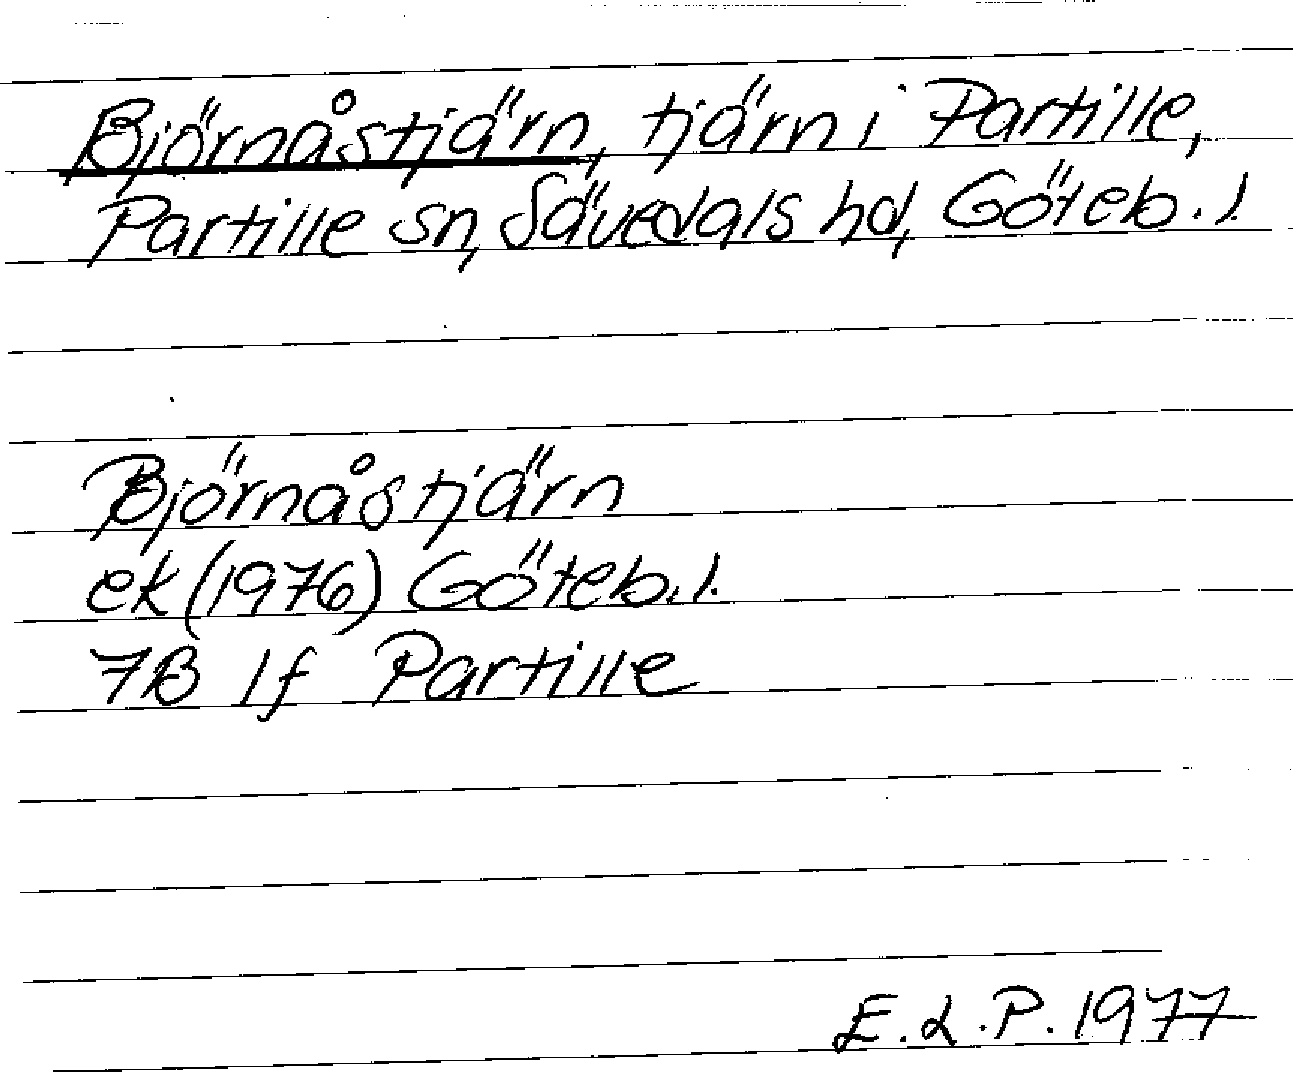 Björnåstjärn, tjärn i Partille,
Partille sn, Sävedals hd, Göteb. l.
Björnåstjärn
ek (1976) Göteb. l.
7B 1f Partille
E.L.P. 1977